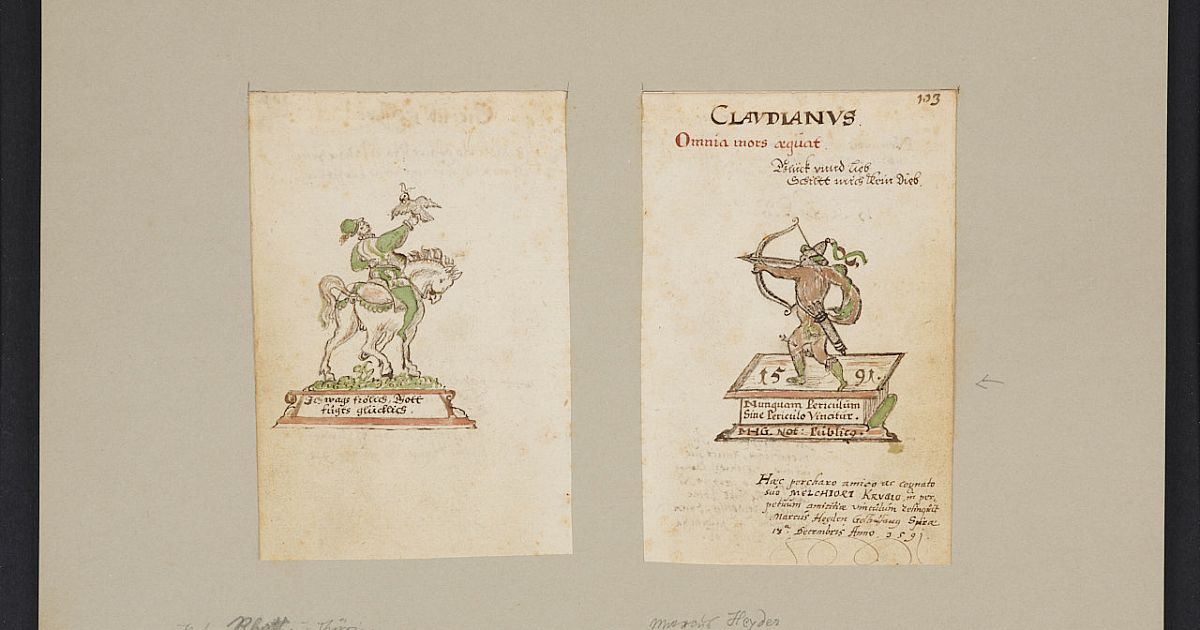 Ich wags frölich, Gott
fügts glücklich.
103
CLAVDIANVS.
Omnia mors æquat.
Glück vnnd lieb
Schiltt mich kein Dieb.
15 91.
Nunquam Periculum
Sine Periculo Vincitur.
MHG. Not: Publicq.
Hæc percharo amico ac cognato
suo MELCHIORI in per-
petuum amicitiæ vinculum relinquit
Marcus Heyden Spiræ
Decembris Anno 1591.
Marcus Heyden